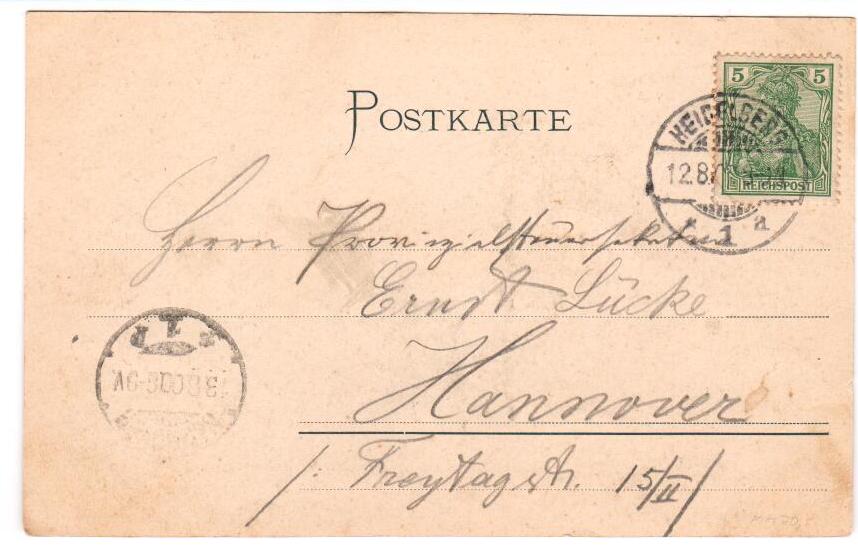 POSTKARTE
5 5
REICHSPOST
HEIDELBERG
12.8.
* 1 a
Herrn Provinzialsteuersekretär
Ernst Lücke
Hannover
/: Freytagstr. 15/II /
13.8.00.8-9V.